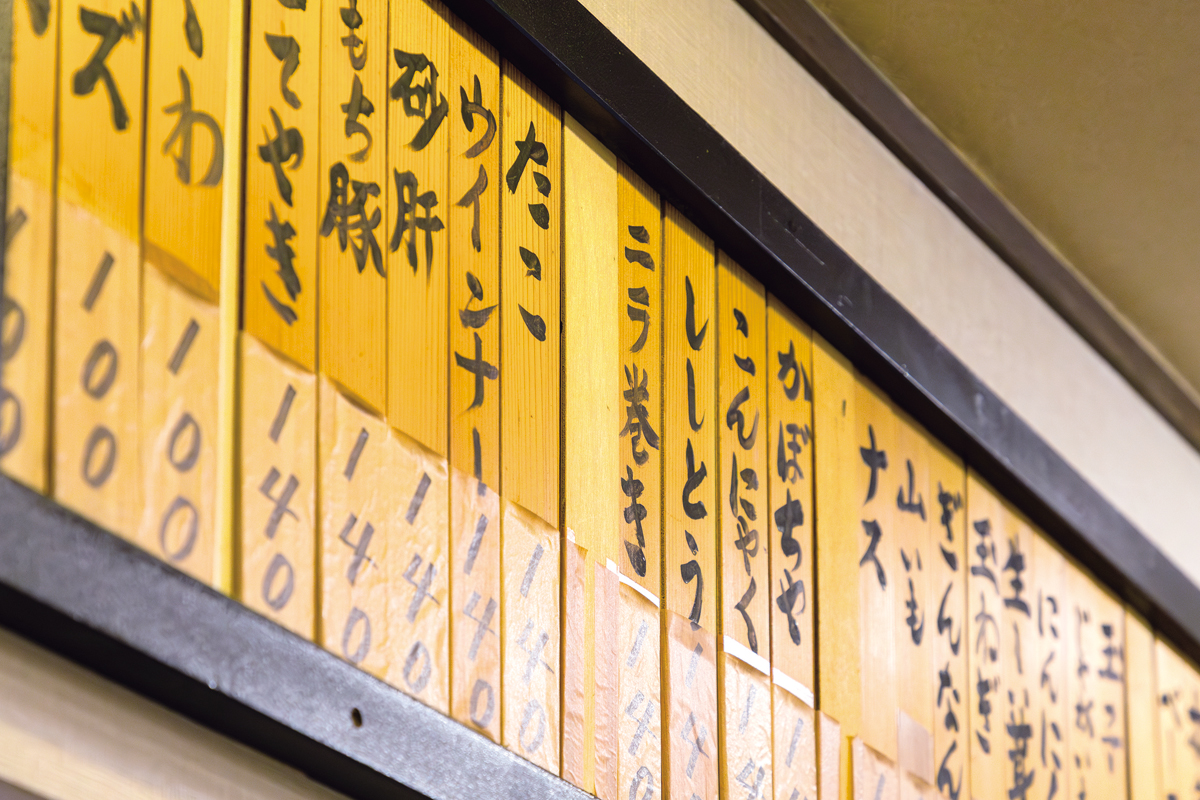 じゃがい
にんに
生しい茸
玉ねぎ
ぎんなん
山いも
ナス
かぼちゃ
1
こんにゃく
14
ししとう
14
ニラ巻き
140
たこ
140
ウインナー
140
砂肝
140
もち豚
140
てやき
140
わ
100
ズ
100